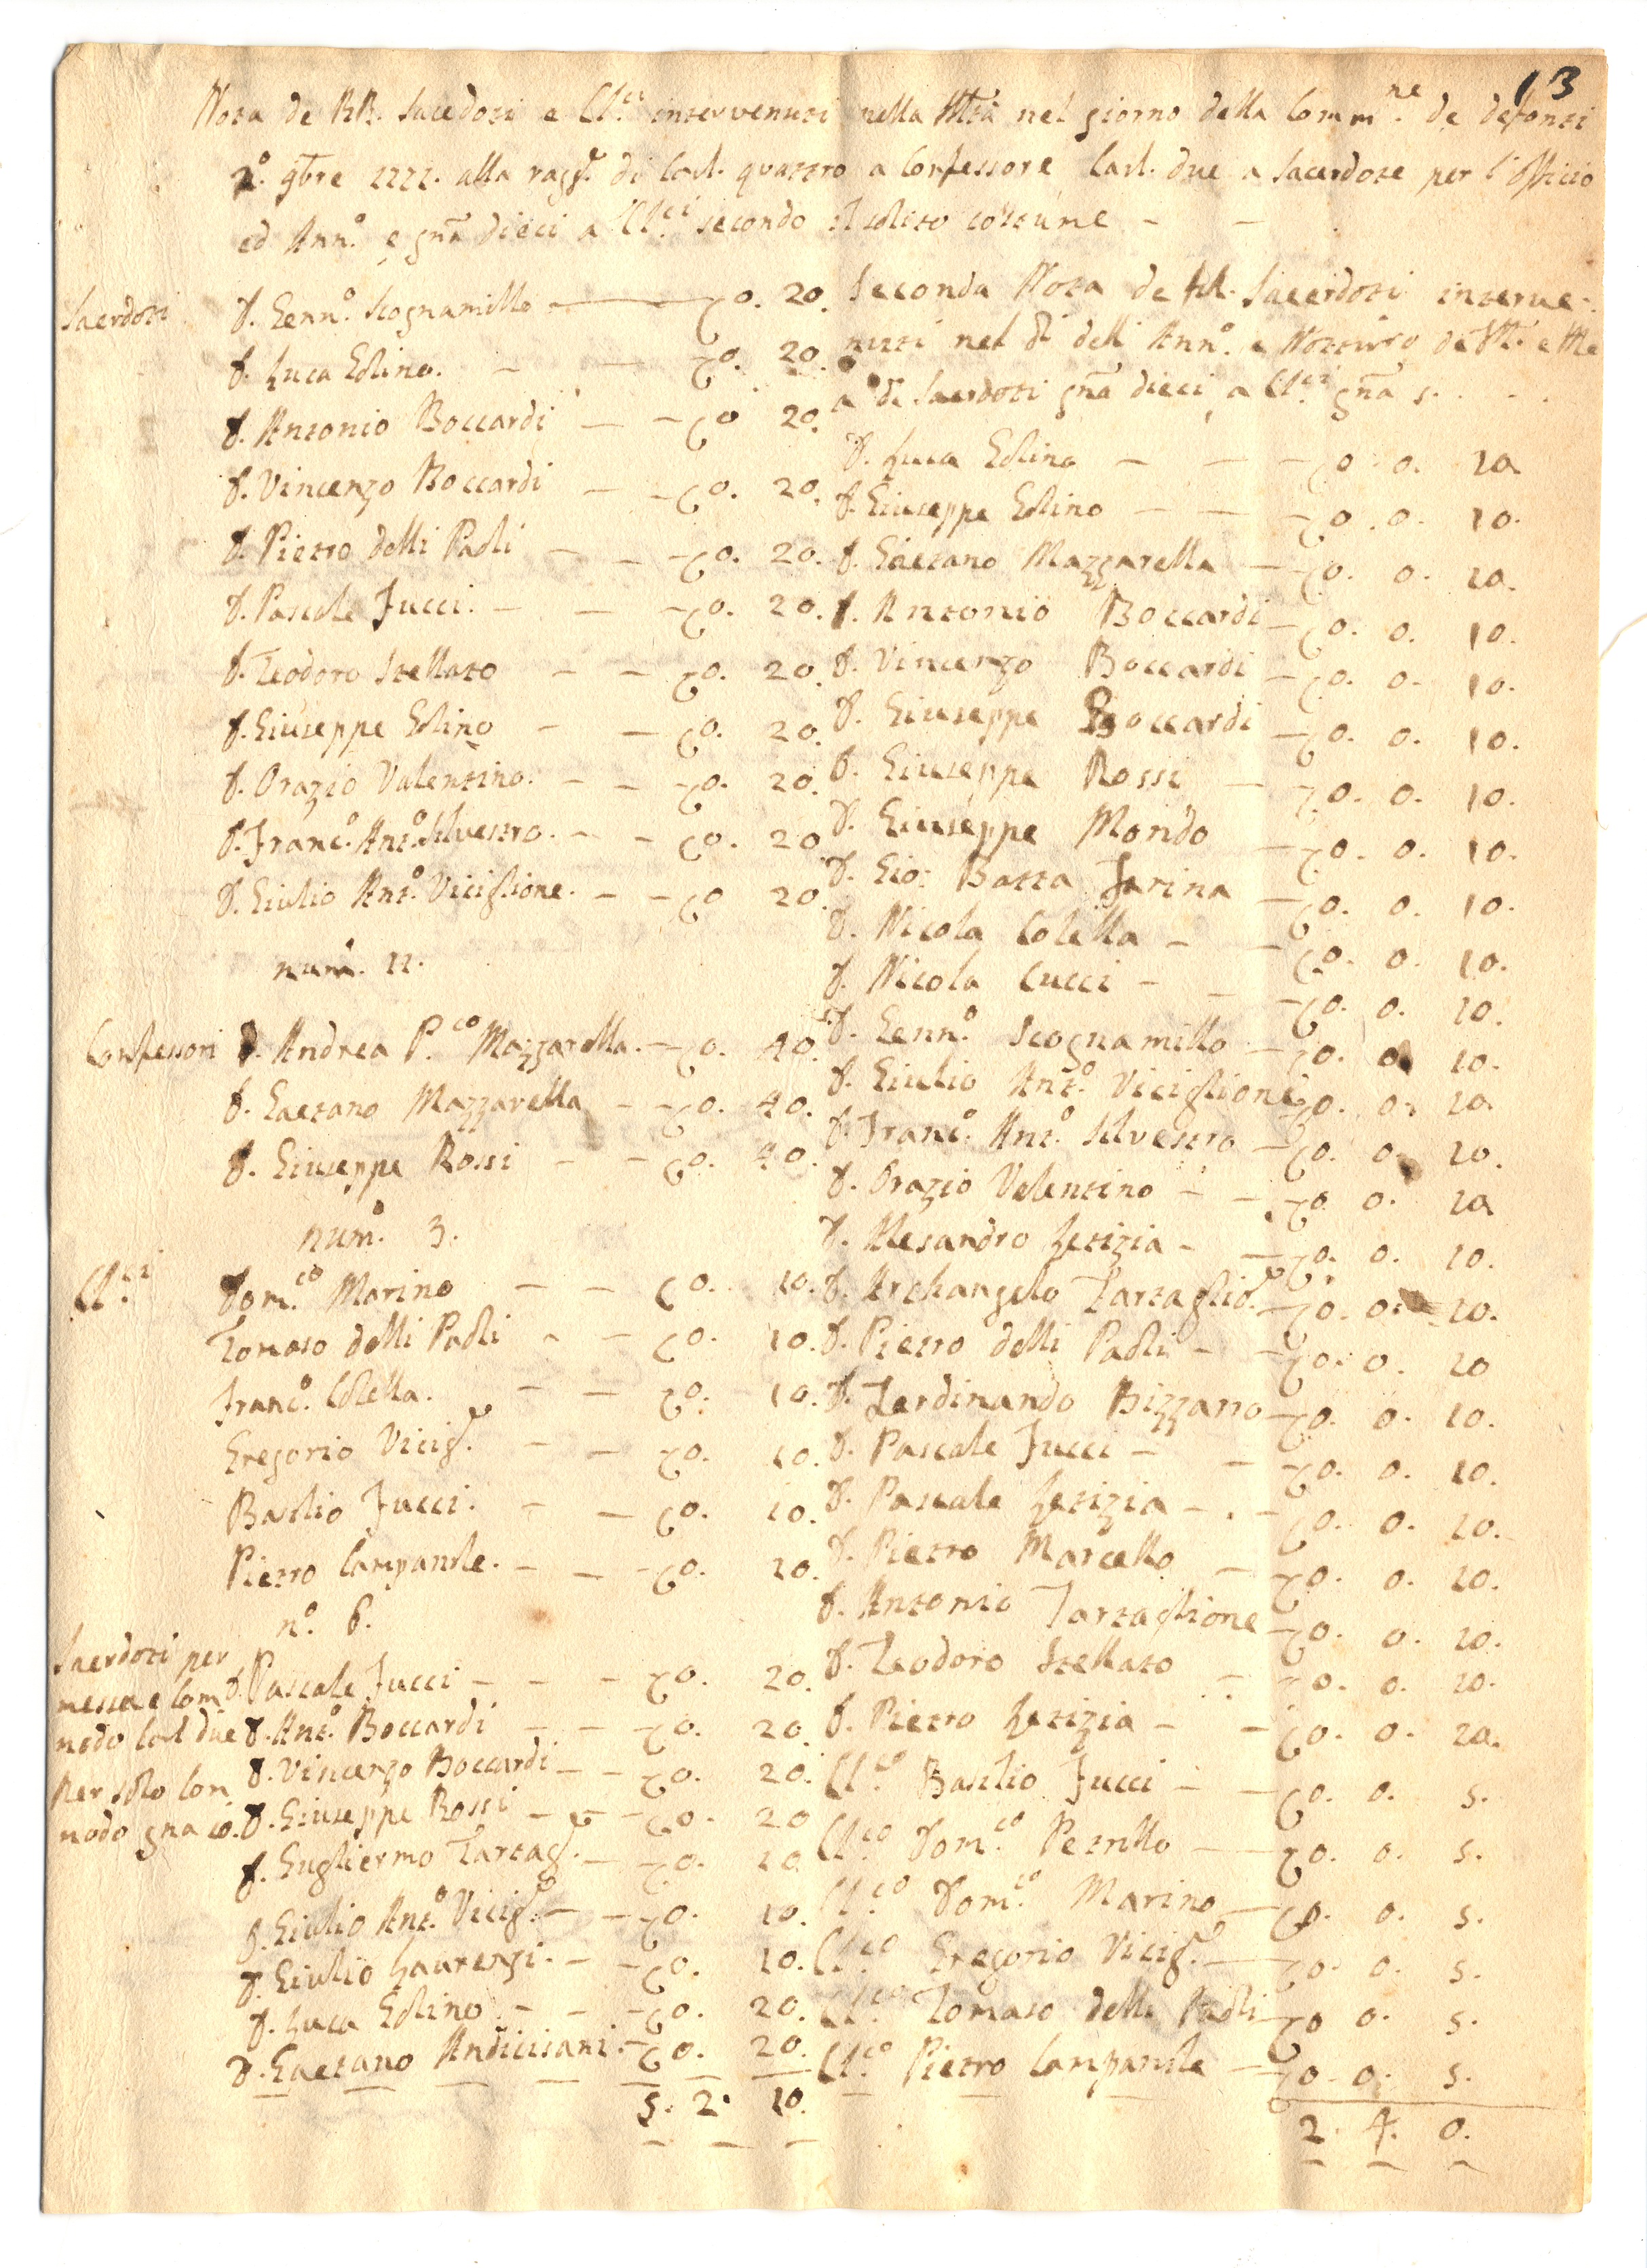 13
Nota de RR. Sacedoti e Cl.ci intervenuti nella nel giorno della Comm.ne de defonti
2.o 9bre 1777. alla rag.e di Carl. quattro a Confessore Carl. due a Sacerdote per l'Officio
ed Ann.o e gnã dieci a Cl.ci secondo il solito costume - -
Sacerdoti
D. Genn.o Scognamillo - 0. 20.
D. Luca Edlino. - - 0. 20.
D. Antonio Boccardi - - 0 20.
D. Vincenzo Boccardi - - 0. 20.
D. Pietro delli Paoli - - - 0. 20.
D. Pascale Jucci. - - - 0. 20.
D. Teodoro Stellato - - 0. 20.
D. Giuseppe Edlino - - 0. 20.
D. Orazio Valentino. - - - 0. 20.
D. Franc.o Ant.o Silvestro. - - 0. 20
D. Giulio Ant.o Viciglione. - - 0 20.
num. 11.
Confessori D. Andrea P.co Mazzarella. - 0. 40.
D. Gaetano Mazzarella - - 0. 40.
D. Giuseppe Rossi - - 0. 40.
num.o 3.
Cl.ci
Dom.co Marino - - 0. 10.
Tomaso delli Paoli - - 0. 10.
Franc.o Colella. - - 0. 10.
Gregorio Vicig.e - - 0. 10.
Basilio Jucci. - - 0. 10.
Pietro Campanile. - - - 0. 10.
n.o 6.
Sacerdoti per
messa e Com
modo Carl due
Per solo Com
modo gna 10.
D. Pascale Jucci - - - 0. 20.
D. Ant.o Boccardi - - 0. 20.
D. Vincenzo Boccardi - - 0. 20.
D. Giuseppe Rossi - - - 0. 20
D. Gugliermo Tartag.e - - 0. 10
D. Giulio Ant.o Vicig.e - - 0. 10.
D. Giulio Laurenzi. - - 0. 10.
D. Luca Edlino - - - 0. 20.
D. Gaetano - 0. 20.
5. 2. 10.
Seconda Nota de RR. Sacerdoti interve-
nuti nel dì dell Ann.o e Notturno de
a di Sacerdoti gnã dieci, a Cl.ci gnã 5. . .
D. Luca Edlino - - - 0 . 0. 10
D. Giuseppe Edlino - - - 0 . 0. 10.
D. Gaetano Mazzarella - 0. 0. 10.
D. Antonio Boccardi - 0. 0. 10.
D. Vincenzo Boccardi - 0. 0. 10.
D. Giuseppe Boccardi - 0. 0. 10.
D. Giuseppe Rossi - 0. 0. 10.
D. Giuseppe Mondo - 0. 0. 10.
D. Gio: Batta Farina - 0. 0. 10.
D. Nicola Colella - - 0. 0. 10.
D. Nicola Cucci - - - 0. 0. 10.
D. Genn.o Scognamillo - 0. 0. 10.
D. Giulio Ant.o Viciglione 0. 0. 10.
D. Franc.o Ant.o Silvestro - 0. 0. 10.
D. Orazio Valentino - - 0. 0. 10
D. Alesandro Letizia - - 0. 0. 10.
D. Archangelo Tartaglio.e - 0. 0. 10.
D. Pietro delli Paoli - - 0. 0. 10
D. Ferdinando Bizzarro - 0. 0. 10.
D. Pascale Jucci - - 0. 0. 10.
D. Pascale Letizia - . - 0. 0. 10.
D. Pietro Marcello - 0. 0. 10.
D. Antonio Tartaglione - 0. 0. 10.
D. Teodoro Stellato - 0. 0. 10.
D. Pietro Letizia - - 0. 0. 10.
Cl.co Basilio Jucci - - 0. 0. 5.
Cl.co Dom.co Petrillo - 0. 0. 5.
Cl.co Dom.co Marino - 0. 0. 5.
Cl.co Gregorio Vicig.e - 0. 0. 5.
Cl.co Tomaso delli Paoli - 0 0. 5.
Cl.co Pietro Campanile - 0. 0. 5.
2. 4. 0.